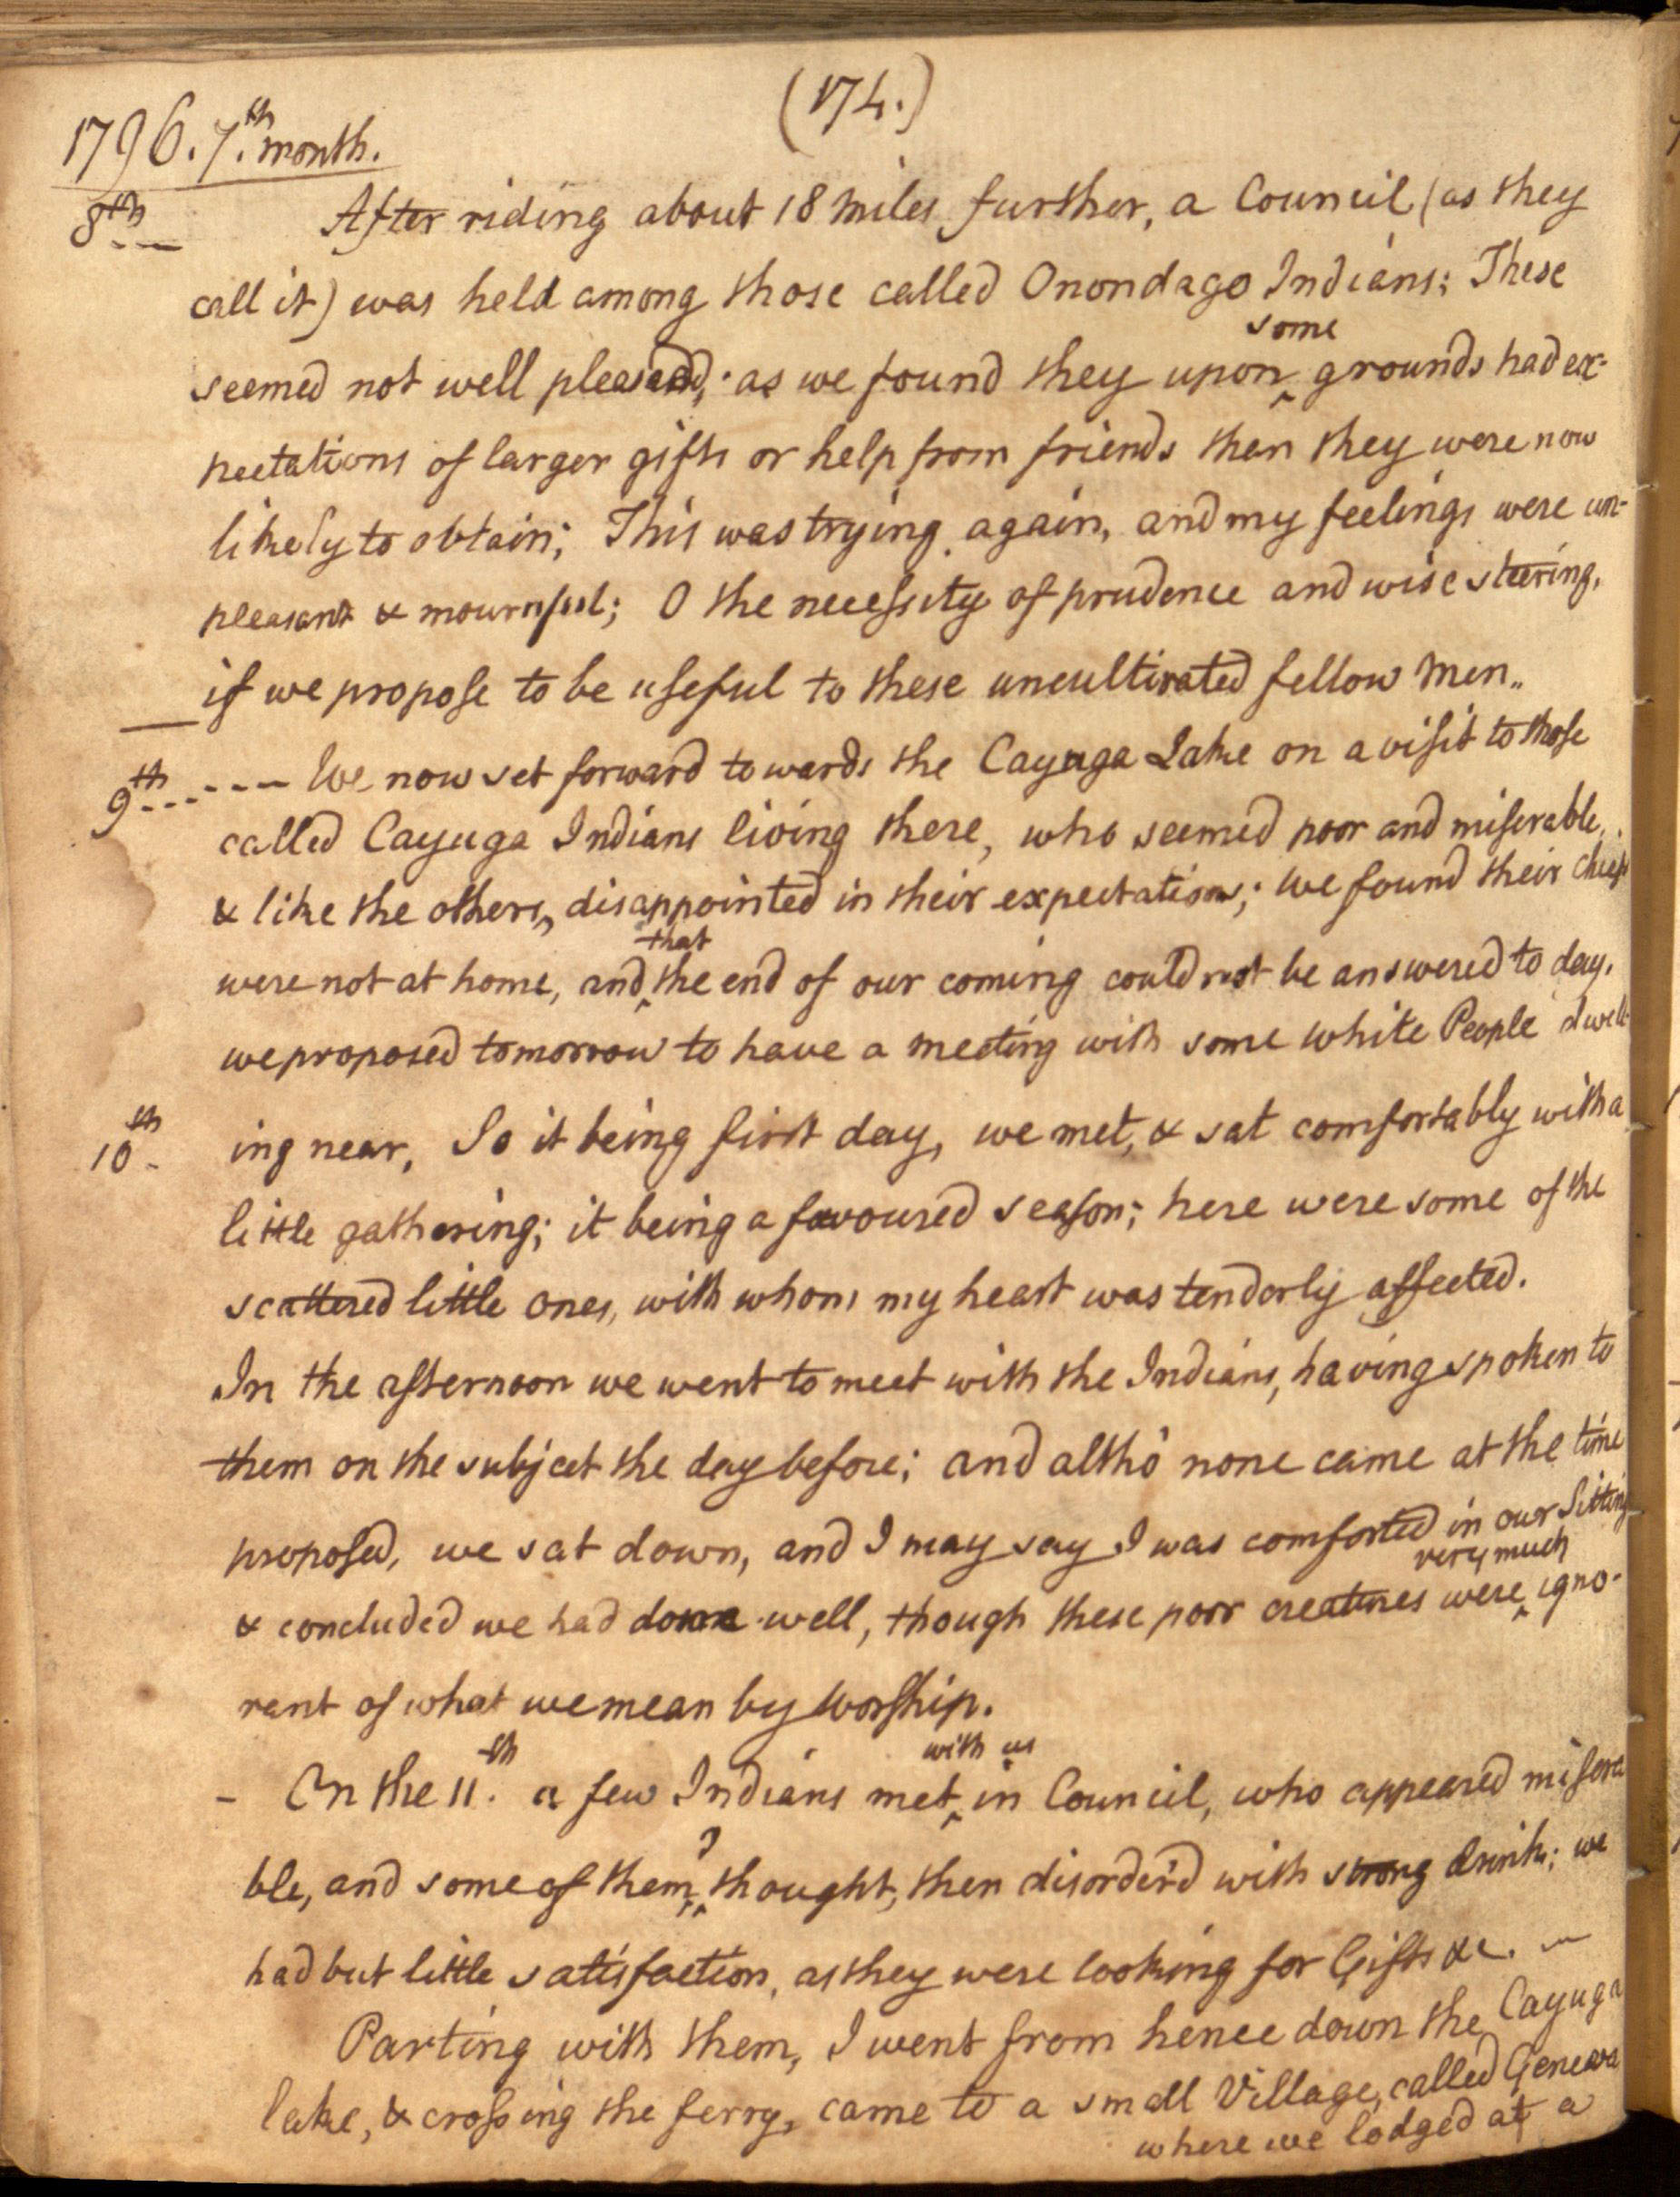 (174.)
1796. 7.th month.
8th -- After riding about 18 miles further, a Council (as they
call it) was held among those called Onondago Indians; These
some
seemed not well pleased, as we found they upon ^ grounds had ex-
pectations of larger gifts or help from friends then they were now
likely to obtain; This was trying again, and my feelings were un-
pleasant & mournful; O the necessity of prudence and wise steering,
if we propose to be useful to these uncultivated fellow men..
9th ------ We now set forward towards the Cayuga Lake on a visit to those
called Cayuga Indians living there, who seemed poor and miserable,
& like the others, disappointed in their expectations; we found their chiefs
that
were not at home, and ^ the end of our coming could not be answered to day,
we proposed tomorrow to have a meeting with some white People dwell-
10th - ing near, So it being first day, we met, & sat comfortably with a
little gathering; it being a favoured season; here were some of the
scattered little ones, with whom my heart was tenderly affected.
In the afternoon we went to meet with the Indians, having spoken to
them on the subject the day before; and altho' none came at the time
proposed, we sat down, and I may say I was comforted in our Sitting
very much
& concluded we had done well, though these poor creatures were ^ igno-
rant of what we mean by Worship.
with us
- On the 11.th a few Indians met ^ in Council, who appeared misera
ble, and some of them, ^ thought, then disorder'd with strong drink; we
had but little satisfaction, as they were looking for Gifts &c. ~
Parting with them, I went from hence down the Cayuga
lake, & crossing the ferry, came to a small Village, called Geneva
where we lodged at a